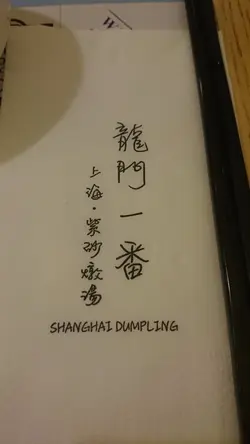 龍門一番
上海·紫砂燉湯
SHANGHAI DUMPLING